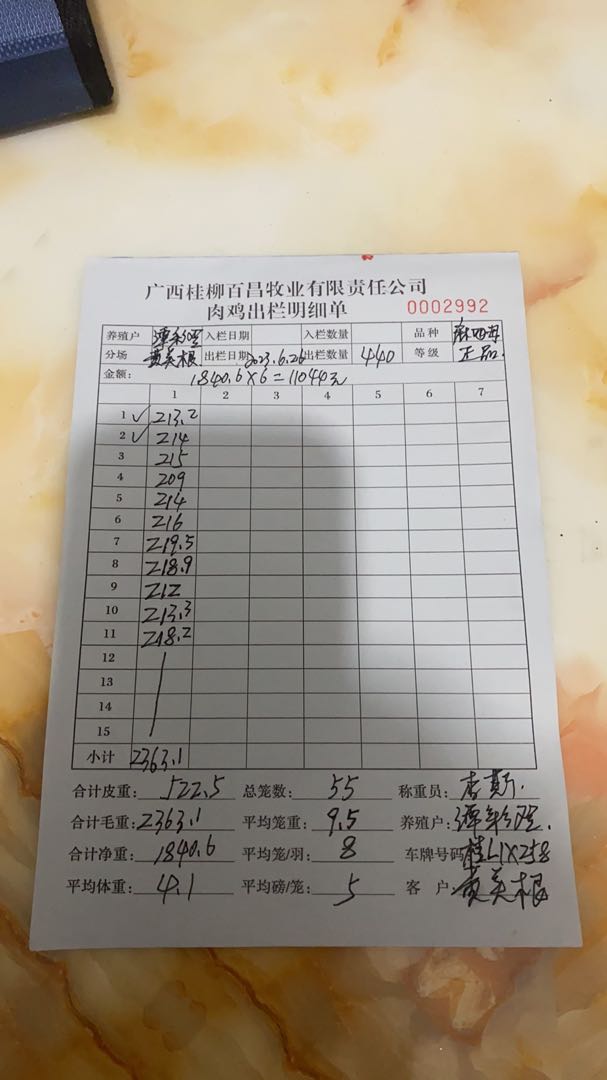 广西桂柳百昌牧业有限责任公司
肉鸡出栏明细单 0002992
养殖户 谭彩强 入栏日期 入栏数量 品种
分场 黄美根 出栏日期 2023.6.26 出栏数量 440 等级 正品.
金额: 1840.6×6=11044元
1 2 3 4 5 6 7
1 ✓ 213.2
2 ✓ 214
3 215
4 209
5 214
6 216
7 219.5
8 218.9
9 212
10 213.3
11 218.2
12
13
14
15
小计 2363.1
合计皮重: 522.5 总笼数: 55 称重员:
合计毛重: 2363.1 平均笼重: 9.5 养殖户: 谭彩强.
合计净重: 1840.6 平均笼/羽: 8 车牌号码 桂L1X258
平均体重: 4.1 平均磅/笼: 5 客户 黄美根